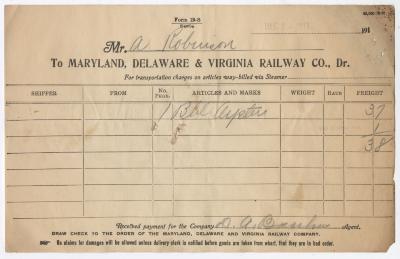 Form 19-S
191
Mr. A Robinson
To MARYLAND, DELAWARE & VIRGINIA RAILWAY CO., Dr.
For transportation charges on articles way-billed via Steamer
SHIPPER FROM No. PKGS. ARTICLES AND MARKS WEIGHT RATE FREIGHT
1 Bbl Oysters 37
1
38
Received payment for the Company Agent.
DRAW CHECK TO THE ORDER OF THE MARYLAND, DELAWARE AND VIRGINIA RAILWAY COMPANY.
No claims for damages will be allowed unless delivery clerk is notified before goods are taken from wharf, that they are in bad order.